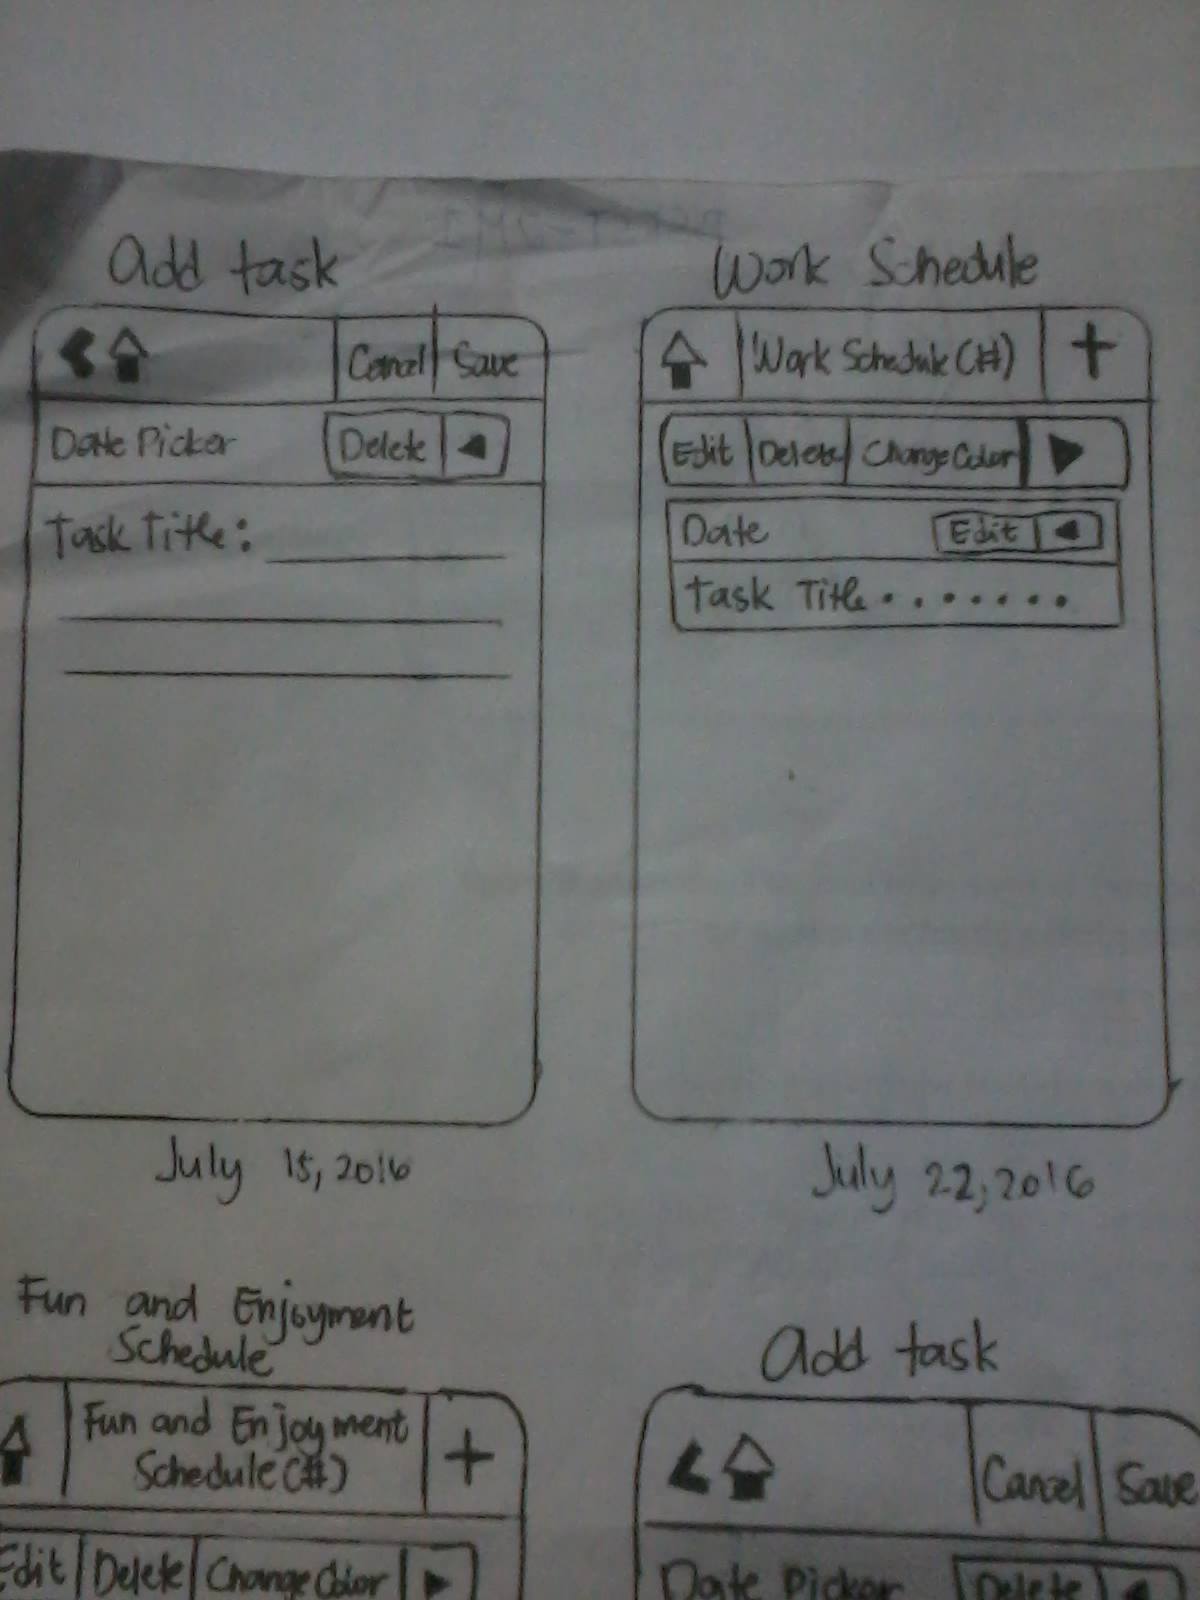 Add task
Cancel Save
Date Picker Delete
Task Title:
July 15, 2016
Work Schedule
Work Schedule (#) +
Edit Delete Change Color
Date Edit
Task Title.......
July 22, 2016
Fun and Enjoyment
Schedule
Fun and Enjoyment
Schedule (#) +
Edit Delete Change Color
Add task
Cancel Save
Date Picker Delete